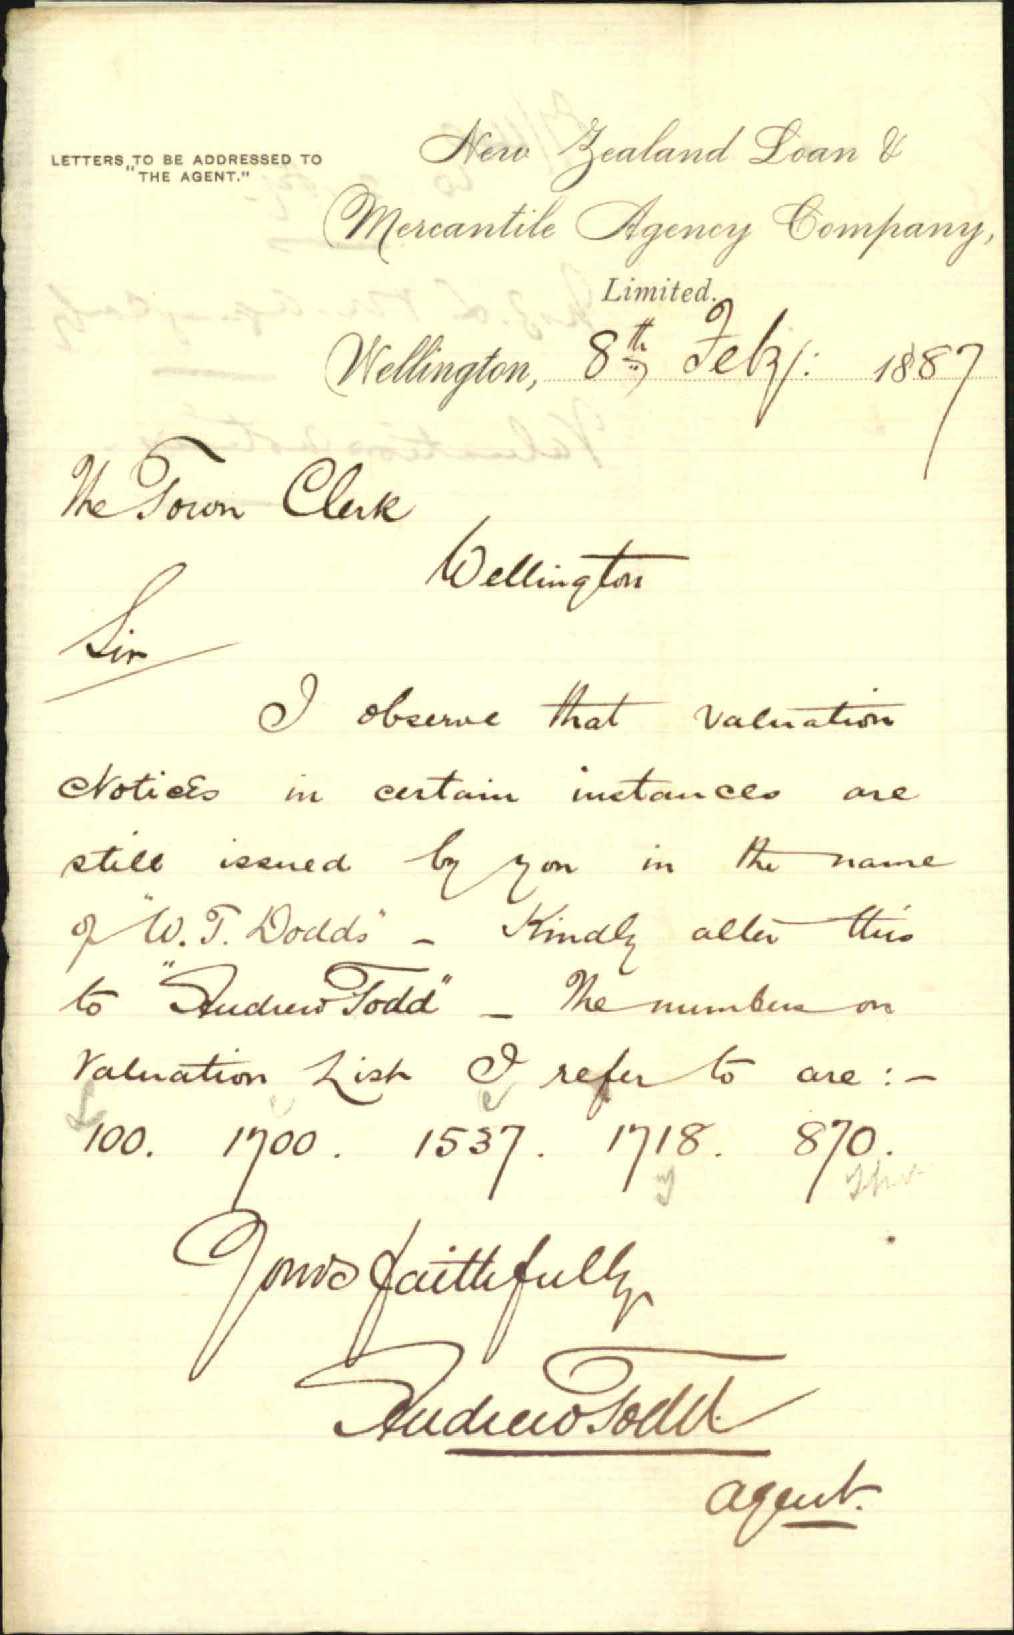 LETTERS TO BE ADDRESSED TO
"THE AGENT."
New Zealand Loan &
Mercantile Agency Company,
Limited.
Wellington, 8th Feby: 1887
The Town Clerk
Wellington
Sir
I observe that valuation
Notices in certain instances are
still issued by you in the name
of "W. T. Dodds" - Kindly alter this
to "Andrew Todd" - The numbers on
Valuation List I refer to are :-
100. 1700. 1537. 1718. 870.
Yours faithfully
Andrew Todd.
Agent.